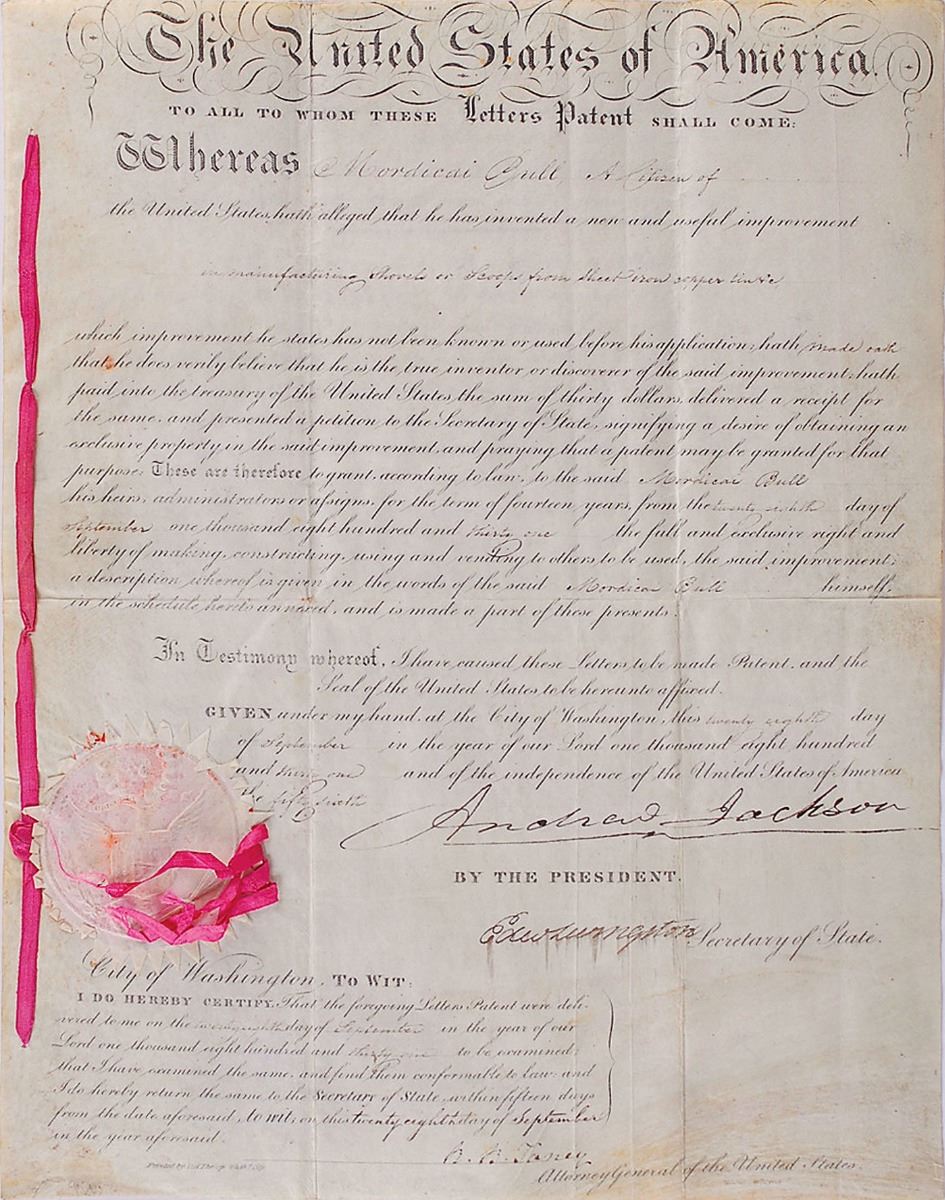 The United States of America.
TO ALL TO WHOM THESE Letters Patent SHALL COME:
Whereas Mordicai Bull, A Citizen of
the United States, hath alleged that he has invented a new and useful improvement
in manufacturing Shovels or Scoops from sheet iron copper tin &c
which improvement he states has not been known or used before his application; hath made oath
that he does verily believe that he is the true inventor or discoverer of the said improvement; hath
paid into the treasury of the United States the sum of thirty dollars, delivered a receipt for
the same, and presented a petition to the Secretary of State, signifying a desire of obtaining an
exclusive property in the said improvement, and praying that a patent may be granted for that
purpose: These are therefore to grant, according to law, to the said Mordicai Bull
his heirs, administrators or assigns, for the term of fourteen years, from the twenty eighth day of
September one thousand eight hundred and thirty one the full and exclusive right and
liberty of making, constructing, using and vending to others to be used, the said improvement;
a description whereof is given in the words of the said Mordica Bull himself,
in the schedule hereto annexed, and is made a part of these presents.
In Testimony whereof, I have caused these Letters to be made Patent, and the
Seal of the United States to be hereunto affixed.
GIVEN under my hand, at the City of Washington, this twenty eighth day
of September in the year of our Lord one thousand eight hundred
and thirty one and of the independence of the United States of America
the fifty sixth
Andrew Jackson
BY THE PRESIDENT.
Edw Livingston Secretary of State.
City of Washington, TO WIT:
I DO HEREBY CERTIFY, That the foregoing Letters Patent were deli-
vered to me on the twenty eighth day of September in the year of our
Lord one thousand eight hundred and thirty one to be examined;
that I have examined the same, and find them conformable to law: and
I do hereby return the same to the Secretary of State, within fifteen days
from the date aforesaid, to wit; on this twenty eighth day of September
in the year aforesaid.
R. B. Taney
Attorney General of the United States.